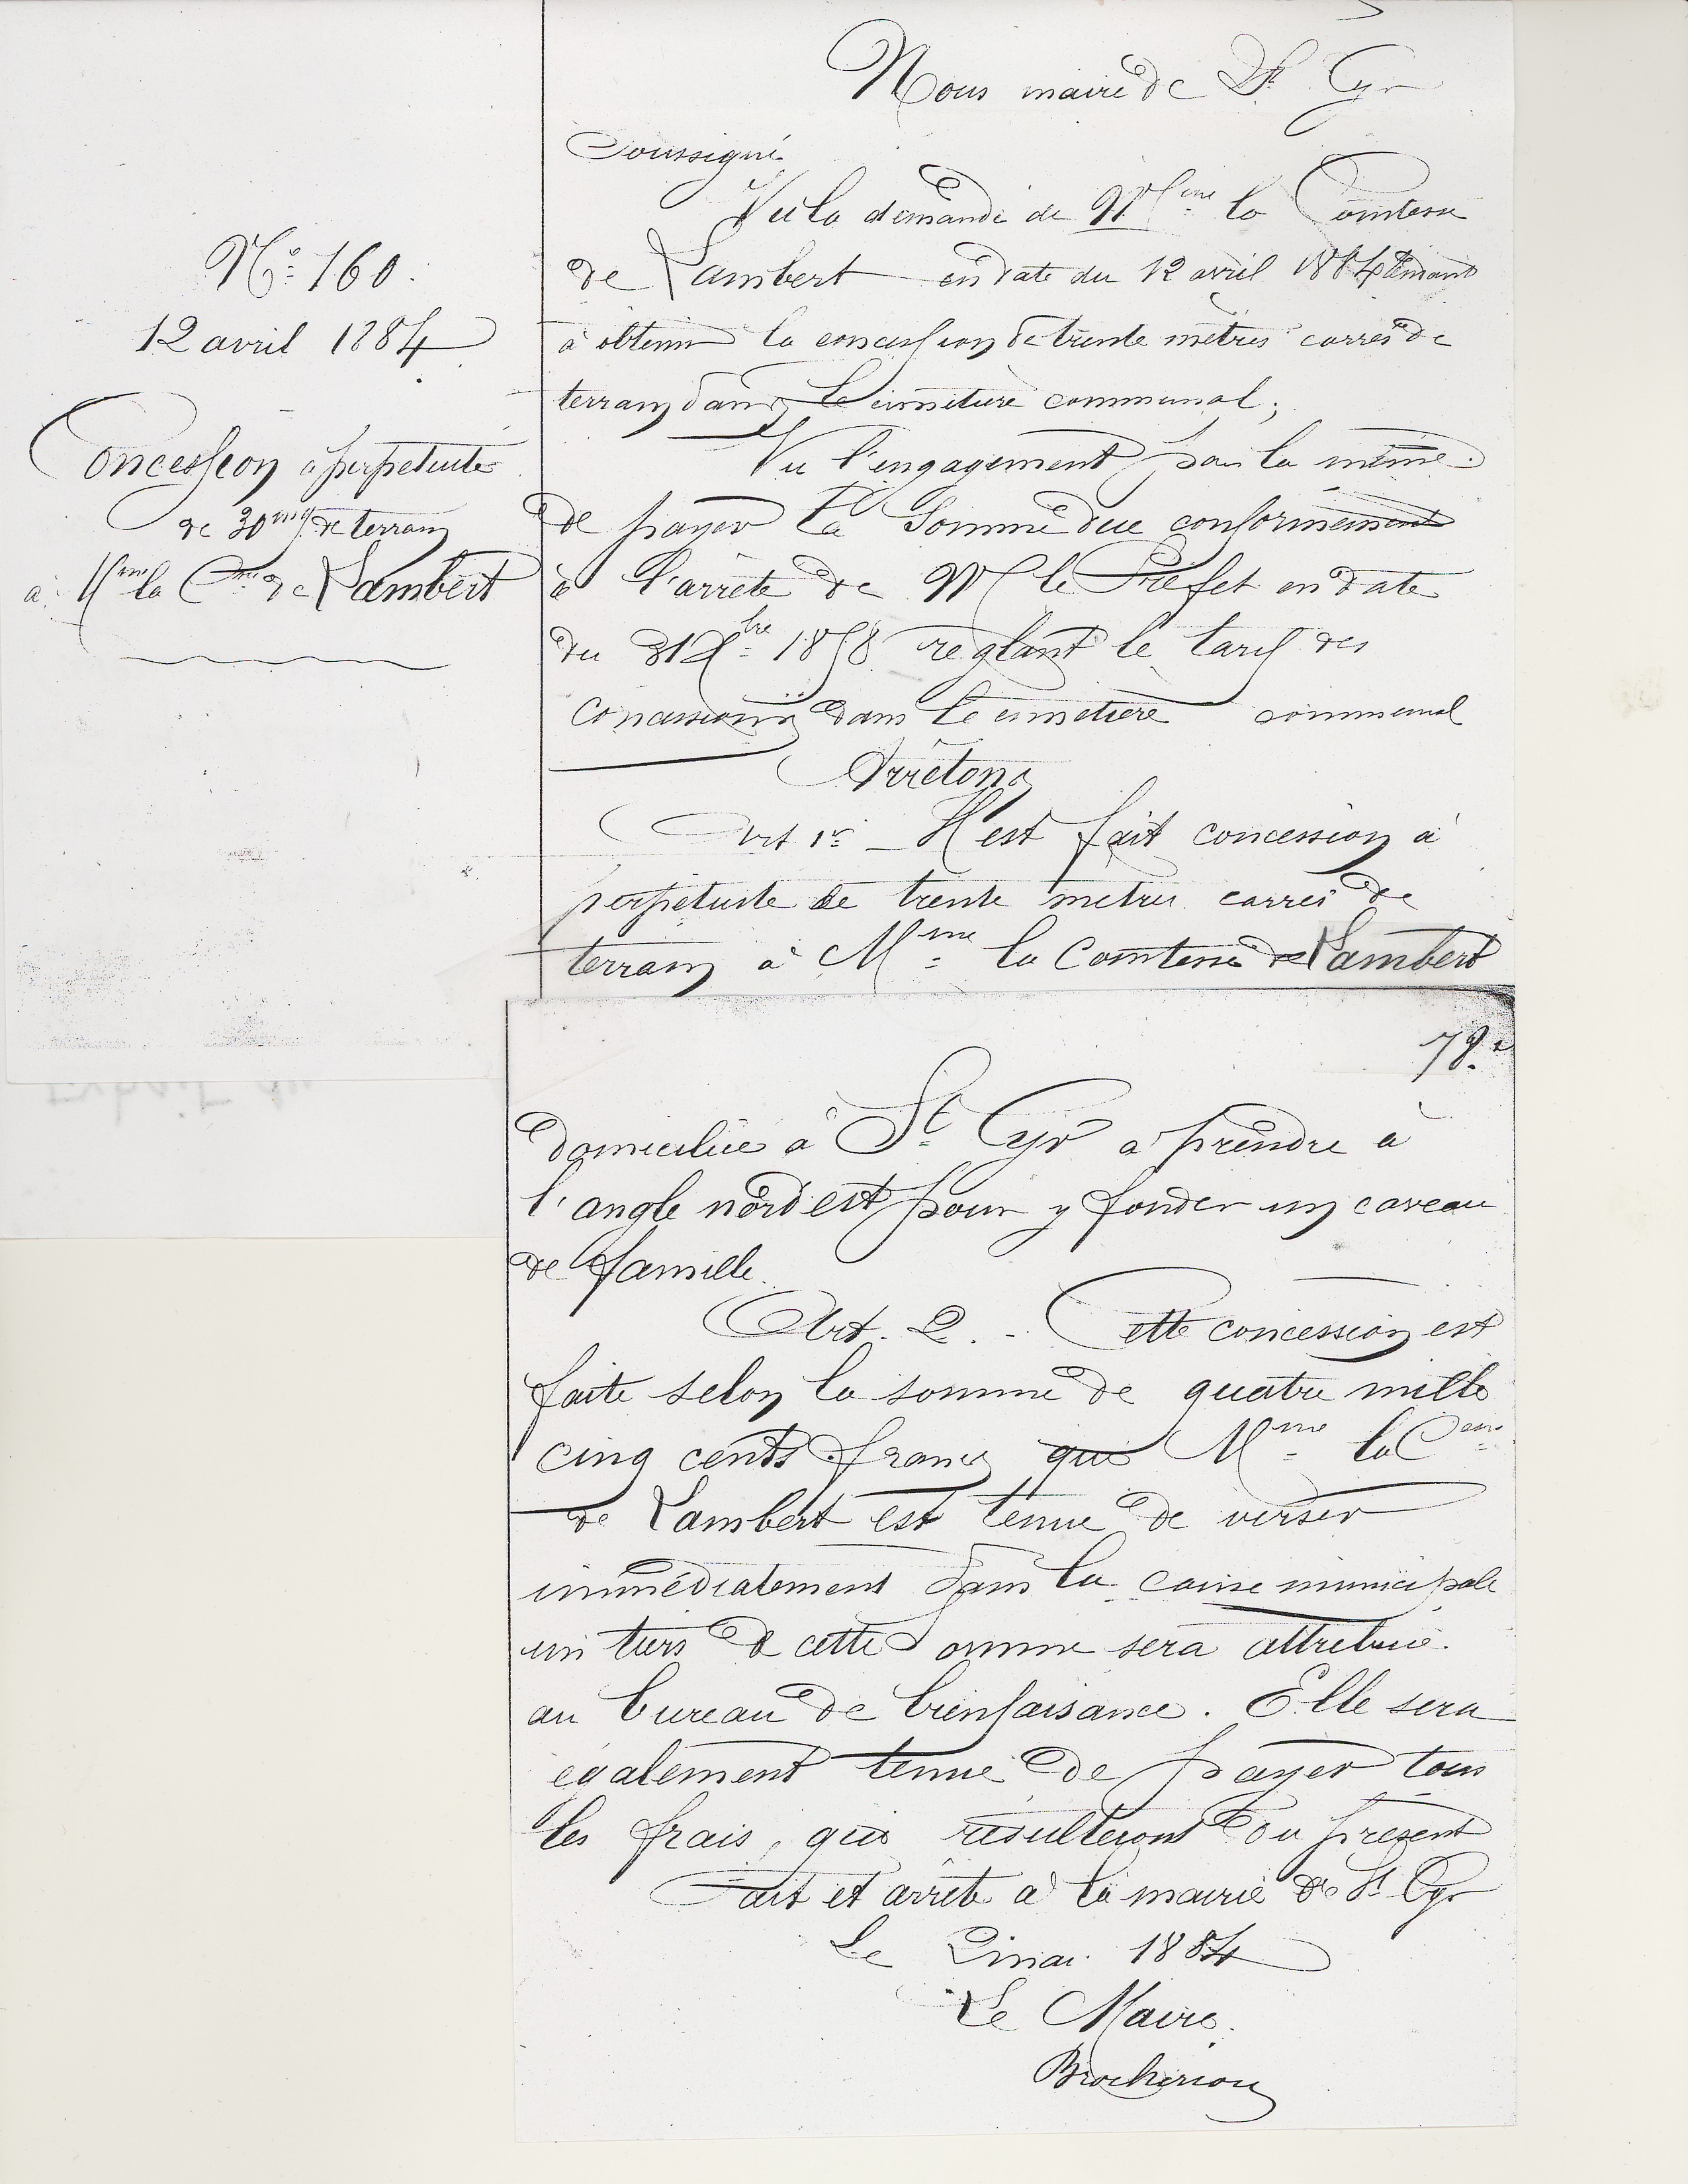 N° 160.
12 avril 1884
Concession à perpetuité
de 30mq de terrain
à Mme la Ctesse de Lambert
Nous maire de St Cyr
Soussigné
Vu la demande de Mme la Comtesse
de Lambert en date du 12 avril 1884
à obtenir la concession de trente mètres carrés de
terrain dans le cimetière communal;
Vu l'engagement par la même
de payer la somme due conformement
à l'arrêté de M le Préfet en date
du 31 Xbre 1858 reglant le tarif des
concessions dans le cimetière communal
Arrêtons
Art 1er _ Il est fait concession à
perpétuité de trente mètres carrés de
terrain à Mme la Comtesse de Lambert
78.
domiciliée à St Cyr à prendre à
l'angle nord est pour y fonder un caveau
de famille
Art. 2. - Cette concession est
faite selon la somme de quatre mille
cinq cents francs que Mme la Ctesse
de Lambert est tenue de verser
immédiatement dans la caisse municipale
un tiers de cette somme sera attribué
au bureau de bienfaisance. Elle sera
également tenue de payer tous
les frais, qui résulteront du présent
Fait et arrêté à la mairie de St Cyr
Le 2 mai 1884
Le Maire.